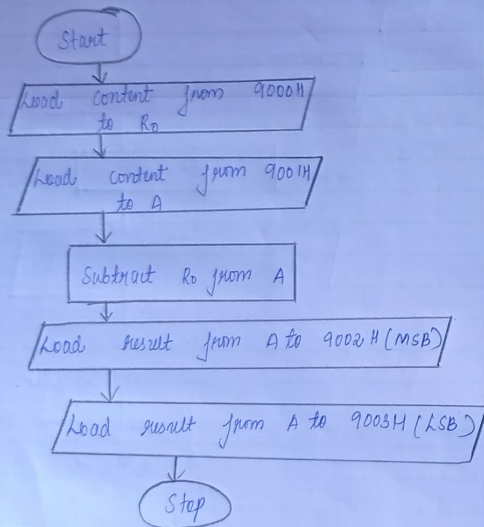 Start
Load content from 9000H
to R0
Load content from 9001H
to A
Subtract R0 from A
Load result from A to 9002H (MSB)
Load result from A to 9003H (LSB)
Stop